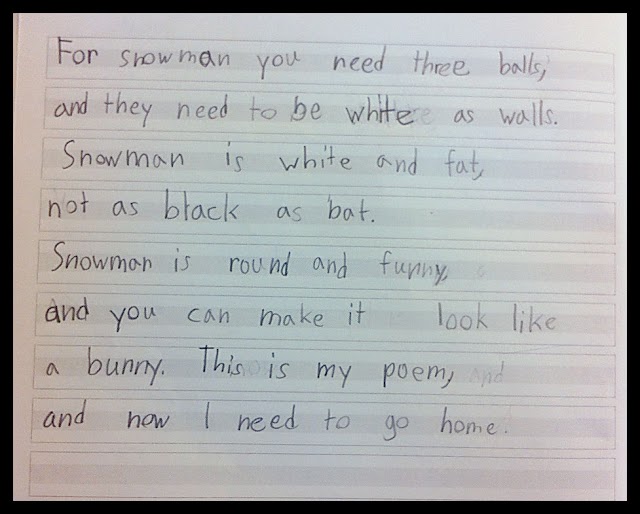 For snowman you need three balls,
and they need to be white as walls.
Snowman is white and fat,
not as black as bat.
Snowman is round and funny,
and you can make it look like
a bunny. This is my poem,
and now I need to go home.